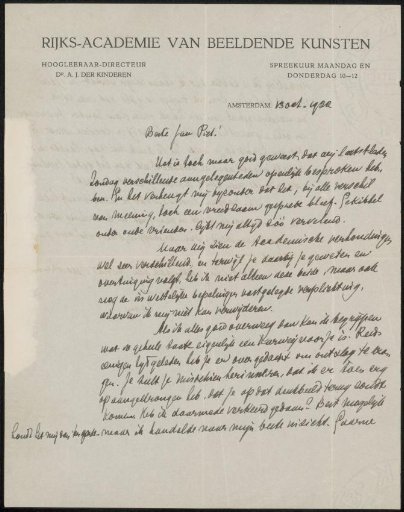 RIJKS-ACADEMIE VAN BEELDENDE KUNSTEN
HOOGLEERAAR-DIRECTEUR
Dr. A. J. DER KINDEREN
SPREEKUUR MAANDAG EN
DONDERDAG 10—12
AMSTERDAM, oct. 1920
Beste Jan Piet!
Het is toch maar goed geweest, dat wij laatstleden
Zondag verschillende aangelegenheden openlijk besproken heb-
ben. En het verheugt mij bijzonder dat het, bij alle verschil
van meening, toch een vreedzaam gesprek bleef. Gekibbel
onder oude vrienden lijkt mij altijd zóó vervelend.
Maar wij zien de Academische verhoudingen
wel zeer verschillend, en terwijl je daarbij je geweten en
overtuiging volgt, heb ik niet alleen deze beide, maar ook
nog de in wettelijke bepalingen vastgelegde verplichting,
waarvan ik mij niet kan verwijderen.
Als ik alles goed overweeg dan kan ik begrijpen
wat de geheele taak eigenlijk een karwei voor je is. Reeds
geleden heb je er over gedacht om ontslag te vra-
gen. Je zult je misschien herinneren, dat ik er toen erg
op aangedrongen heb, dat je op dat denkbeeld terug zoudt
komen. Heb ik daarmede verkeerd gedaan? Best mogelijk
maar ik handelde naar mijn beste inzicht. Gaarne